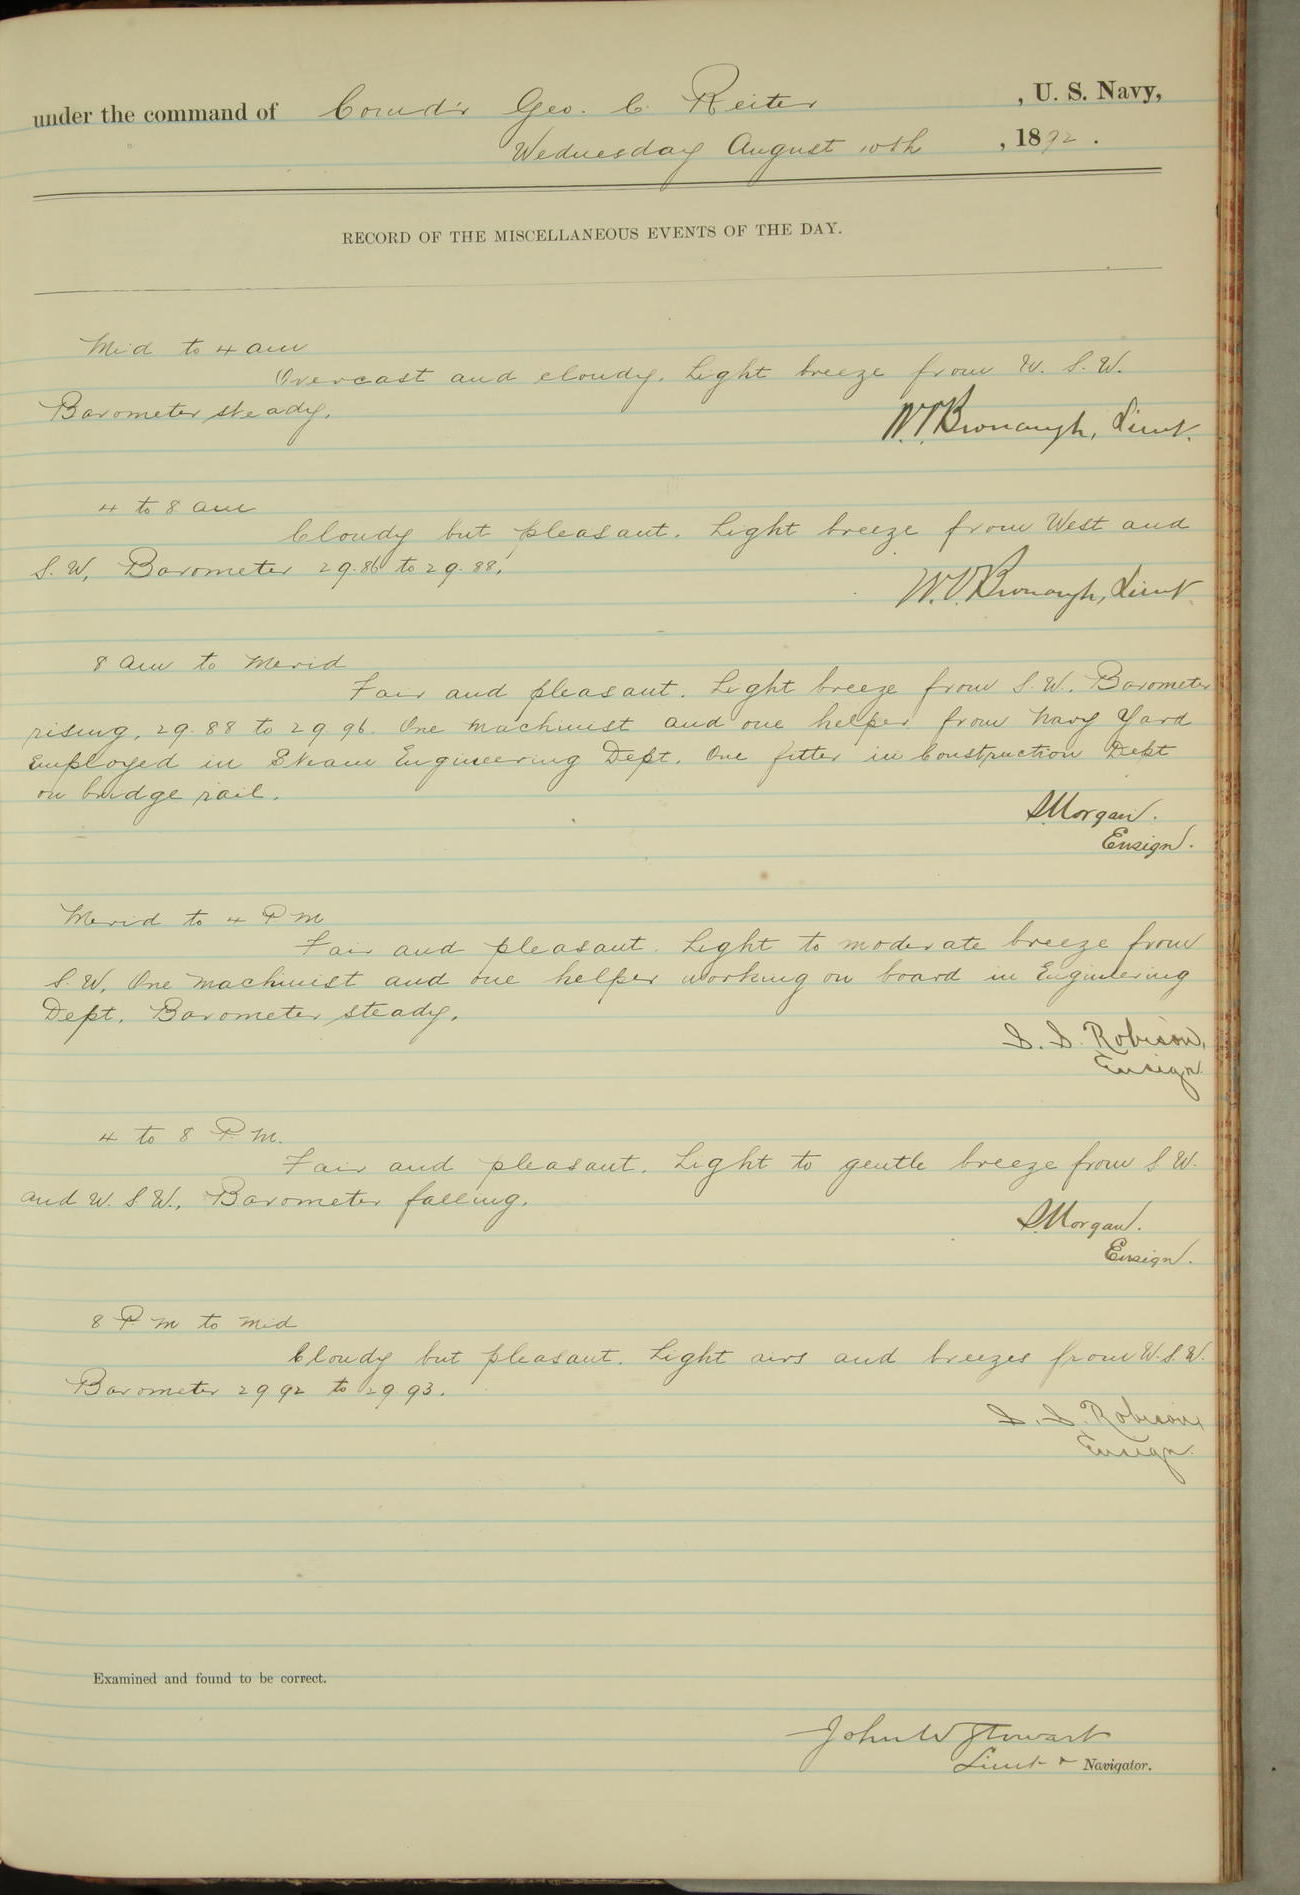 under the command of Comd'r Geo. C. Reiter, U. S. Navy,
Wednesday August 10th, 1892.
RECORD OF THE MISCELLANEOUS EVENTS OF THE DAY.
Mid to 4 am
Overcast and cloudy. Light breeze from W. S. W.
Barometer steady.
W. V. Bronaugh, Lieut.
4 to 8 am
Cloudy but pleasant. Light breeze from West and
S. W. Barometer 29.86 to 29.88.
W. V. Bronaugh, Lieut.
8 am to Merid
Fair and pleasant. Light breeze from S. W. Barometer
rising, 29.88 to 29 96. One machinist and one helper from Navy Yard
employed in Steam Engineering Dept. One fitter in Construction Dept
on bridge rail.
S. Morgan.
Ensign.
Merid to 4 P M
Fair and pleasant. Light to moderate breeze from
S. W. One machinist and one helper working on board in Engineering
Dept. Barometer steady.
S. S. Robison,
Ensign.
4 to 8 P. M.
Fair and pleasant. Light to gentle breeze from S W.
and W. S W., Barometer falling.
S. Morgan.
Ensign.
8 P M to Mid
Cloudy but pleasant. Light airs and breezes from W. S. W.
Barometer 29 92 to 29 93.
S. S. Robison,
Ensign.
Examined and found to be correct.
John W Stewart
Lieut & Navigator.